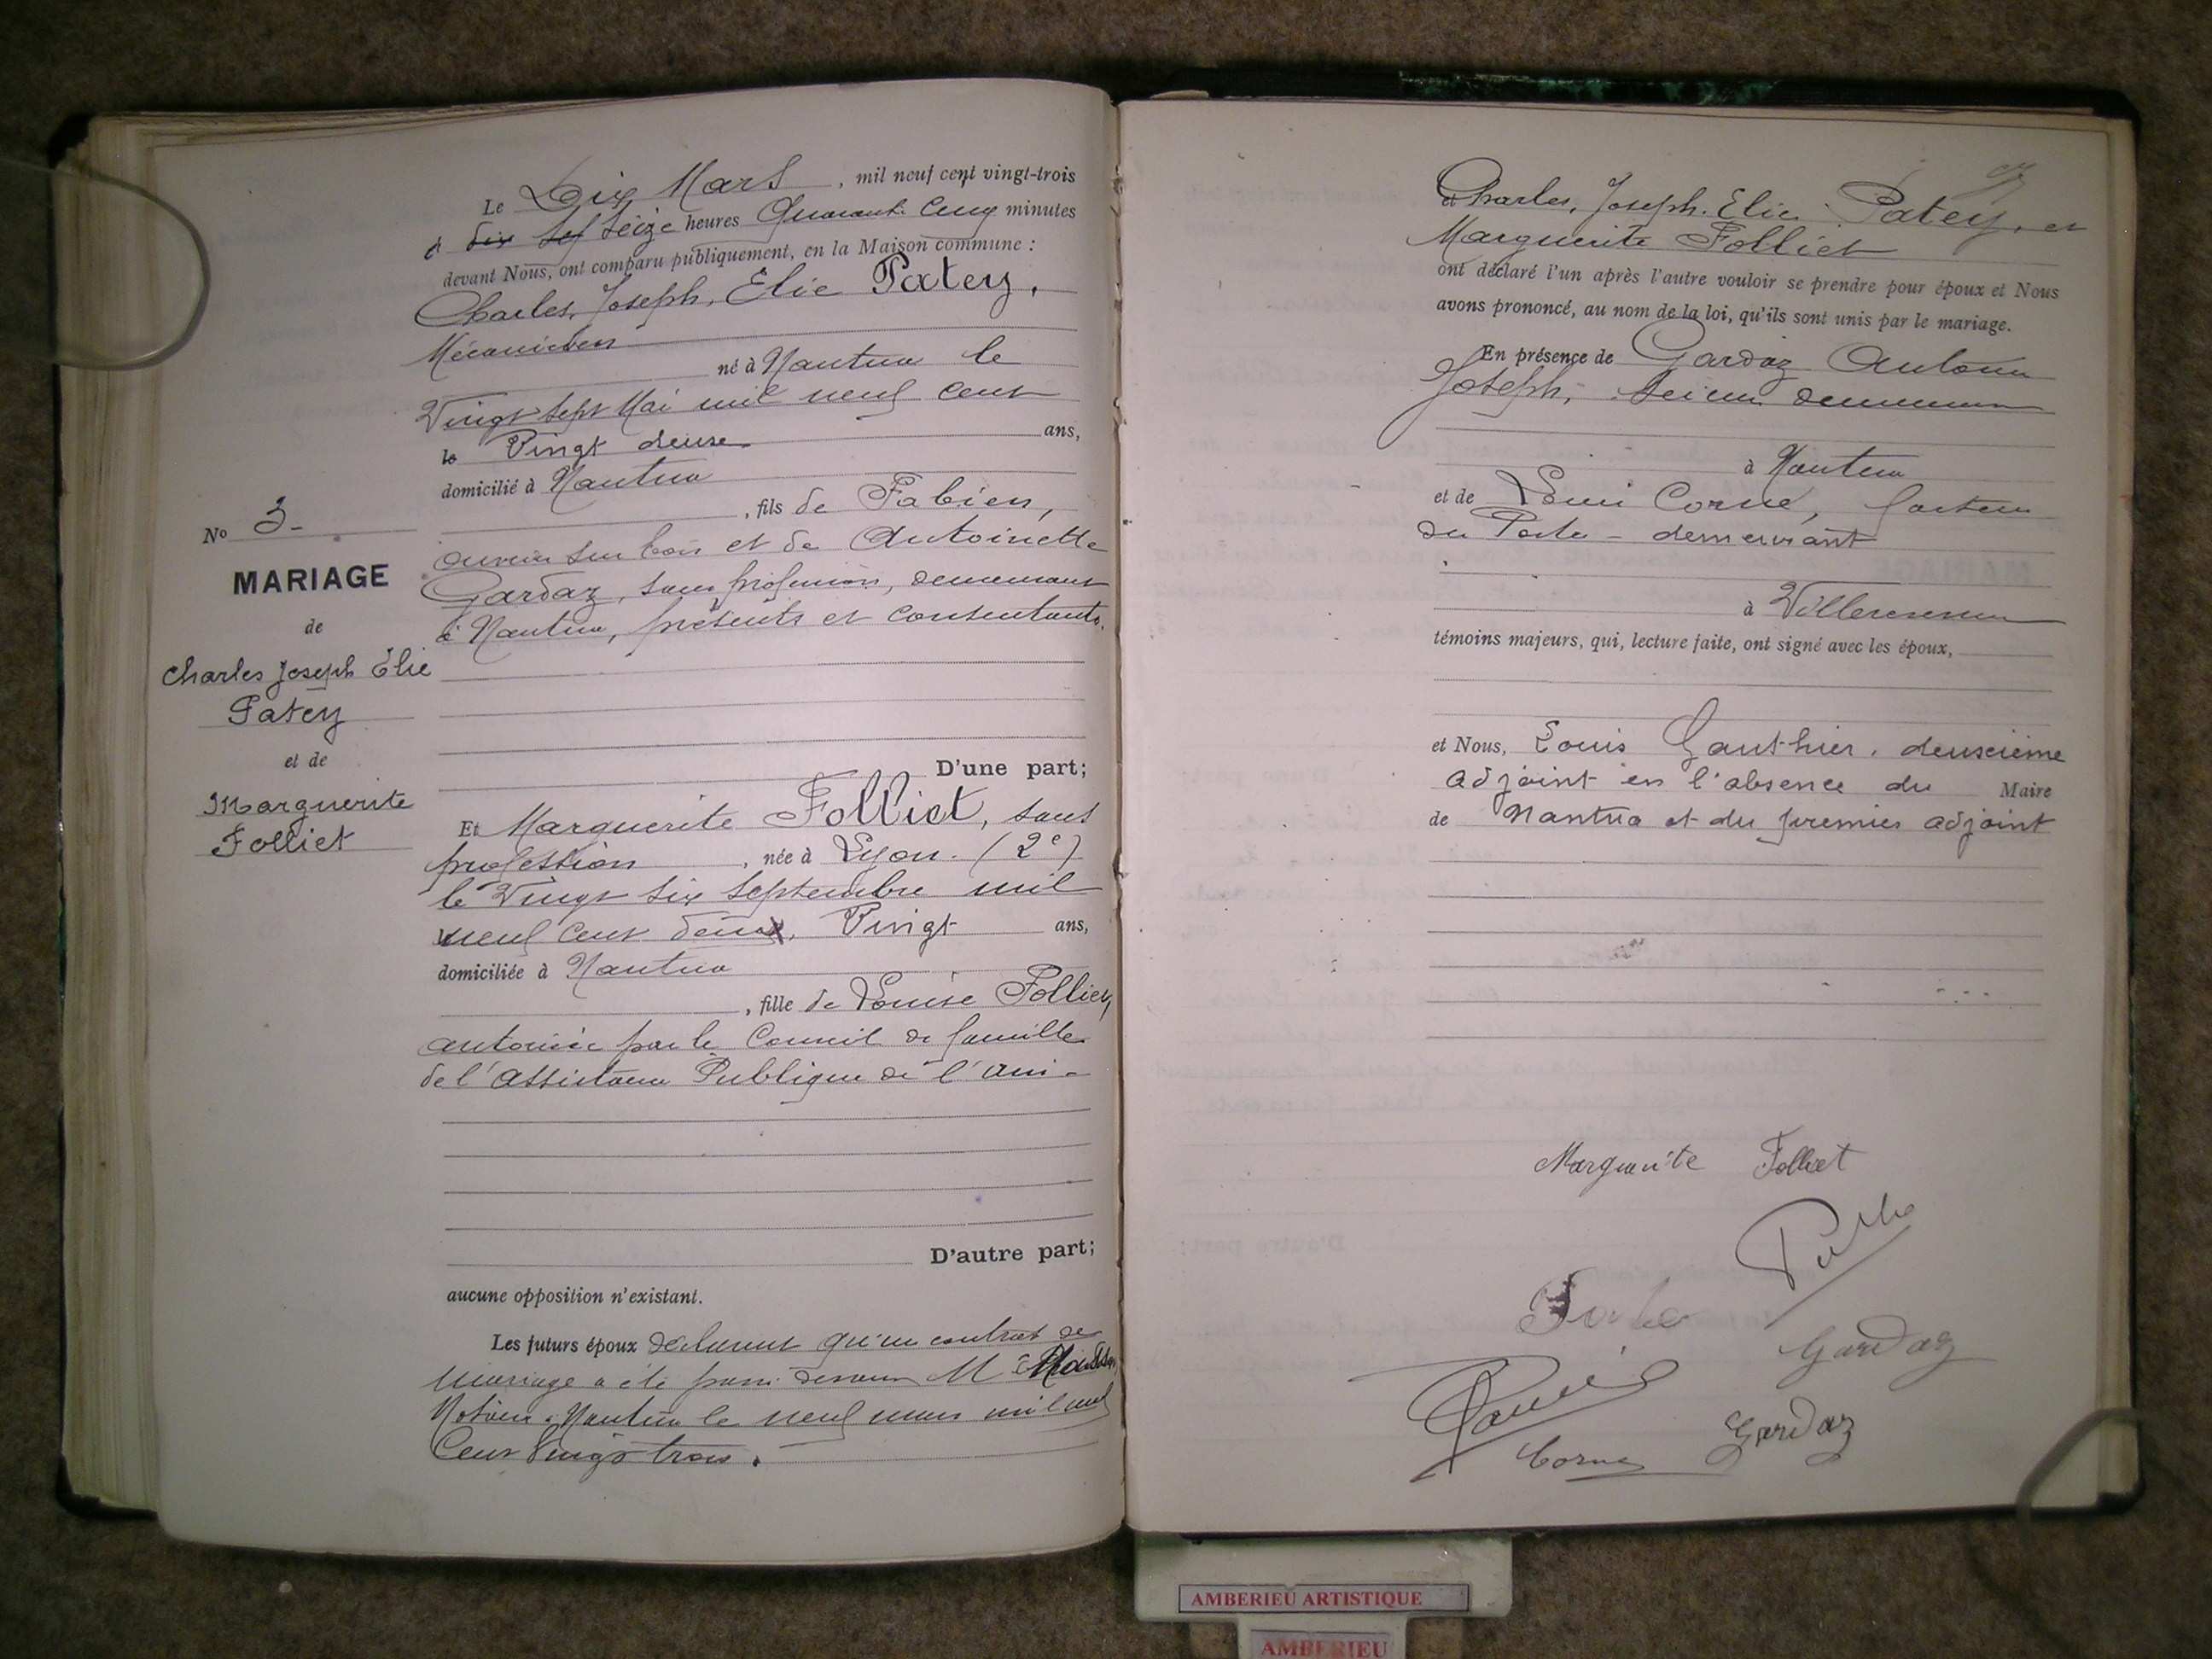 Le Dix Mars, mil neuf cent vingt-trois
à dix sept seize heures Quarante cinq minutes
devant Nous, ont comparu publiquement, en la Maison commune :
Charles, Joseph, Elie Patey,
Mécanicien
né à Nantua le
Vingt sept Mai mil neuf cent
Vingt deux ans,
domicilié à Nantua
, fils de Fabien,
ouvrier sur bois et de Antoinette
Gardaz, sans profession, demeurant
à Nantua, présents et consentants.
D'une part;
No 3-
MARIAGE
de
Charles Joseph Elie
Patey
et de
Marguerite
Folliet
Et Marguerite Folliet, sans
profession, née à Lyon. (2e)
le Vingt six Septembre mil
neuf cent deux, Vingt ans,
domiciliée à Nantua
, fille de Louise Folliet,
autorisée par le Conseil de famille
de l'Assistance Publique de l'Ain-
D'autre part;
aucune opposition n'existant.
Les futurs époux déclarent qu'un contrat de
mariage a été passé devant Me
Notaire à Nantua le neuf mars mil neuf
Cent Vingt trois.
Charles, Joseph. Elie Patey, et
Marguerite Folliet
ont déclaré l'un après l'autre vouloir se prendre pour époux et Nous
avons prononcé, au nom de la loi, qu'ils sont unis par le mariage.
En présence de Gardaz Antoine
Joseph, scieur demeurant
à Nantua
et de Louis Corne, facteur
des Postes - demeurant
à
témoins majeurs, qui, lecture faite, ont signé avec les époux,
et Nous, Louis Gauthier, deuxième
adjoint en l'absence du Maire
de Nantua et du premier adjoint
Marguerite Folliet
Gardaz
Corne Gardaz
AMBERIEU ARTISTIQUE
AMBERIEU